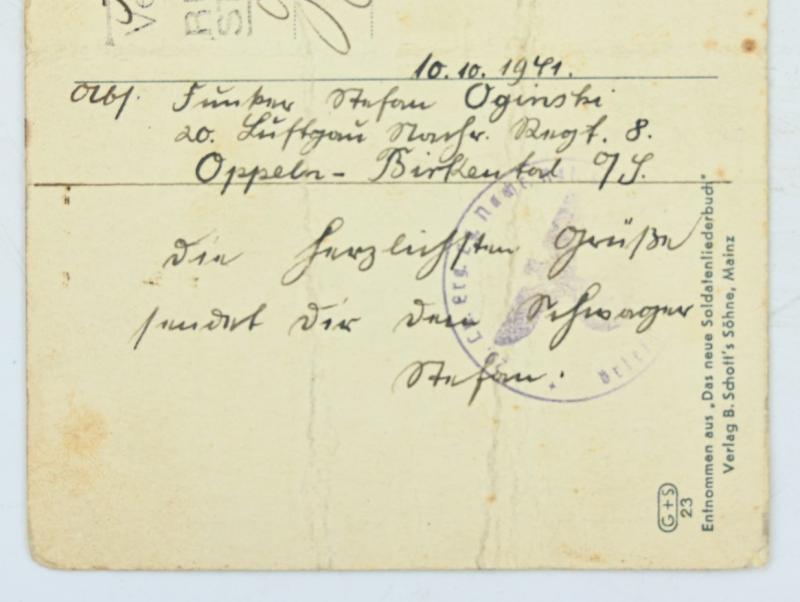 10.10.1941.
Abs. Funker Stefan Oginski
20. Luftgau Nachr. Regt. 8.
Oppeln - Birkental O/S.
Die herzlichsten Grüße
sendet Dir Dein Schwager
Stefan.
Entnommen aus „Das neue Soldatenliederbuch"
Verlag B. Schott's Söhne, Mainz
G+S
23